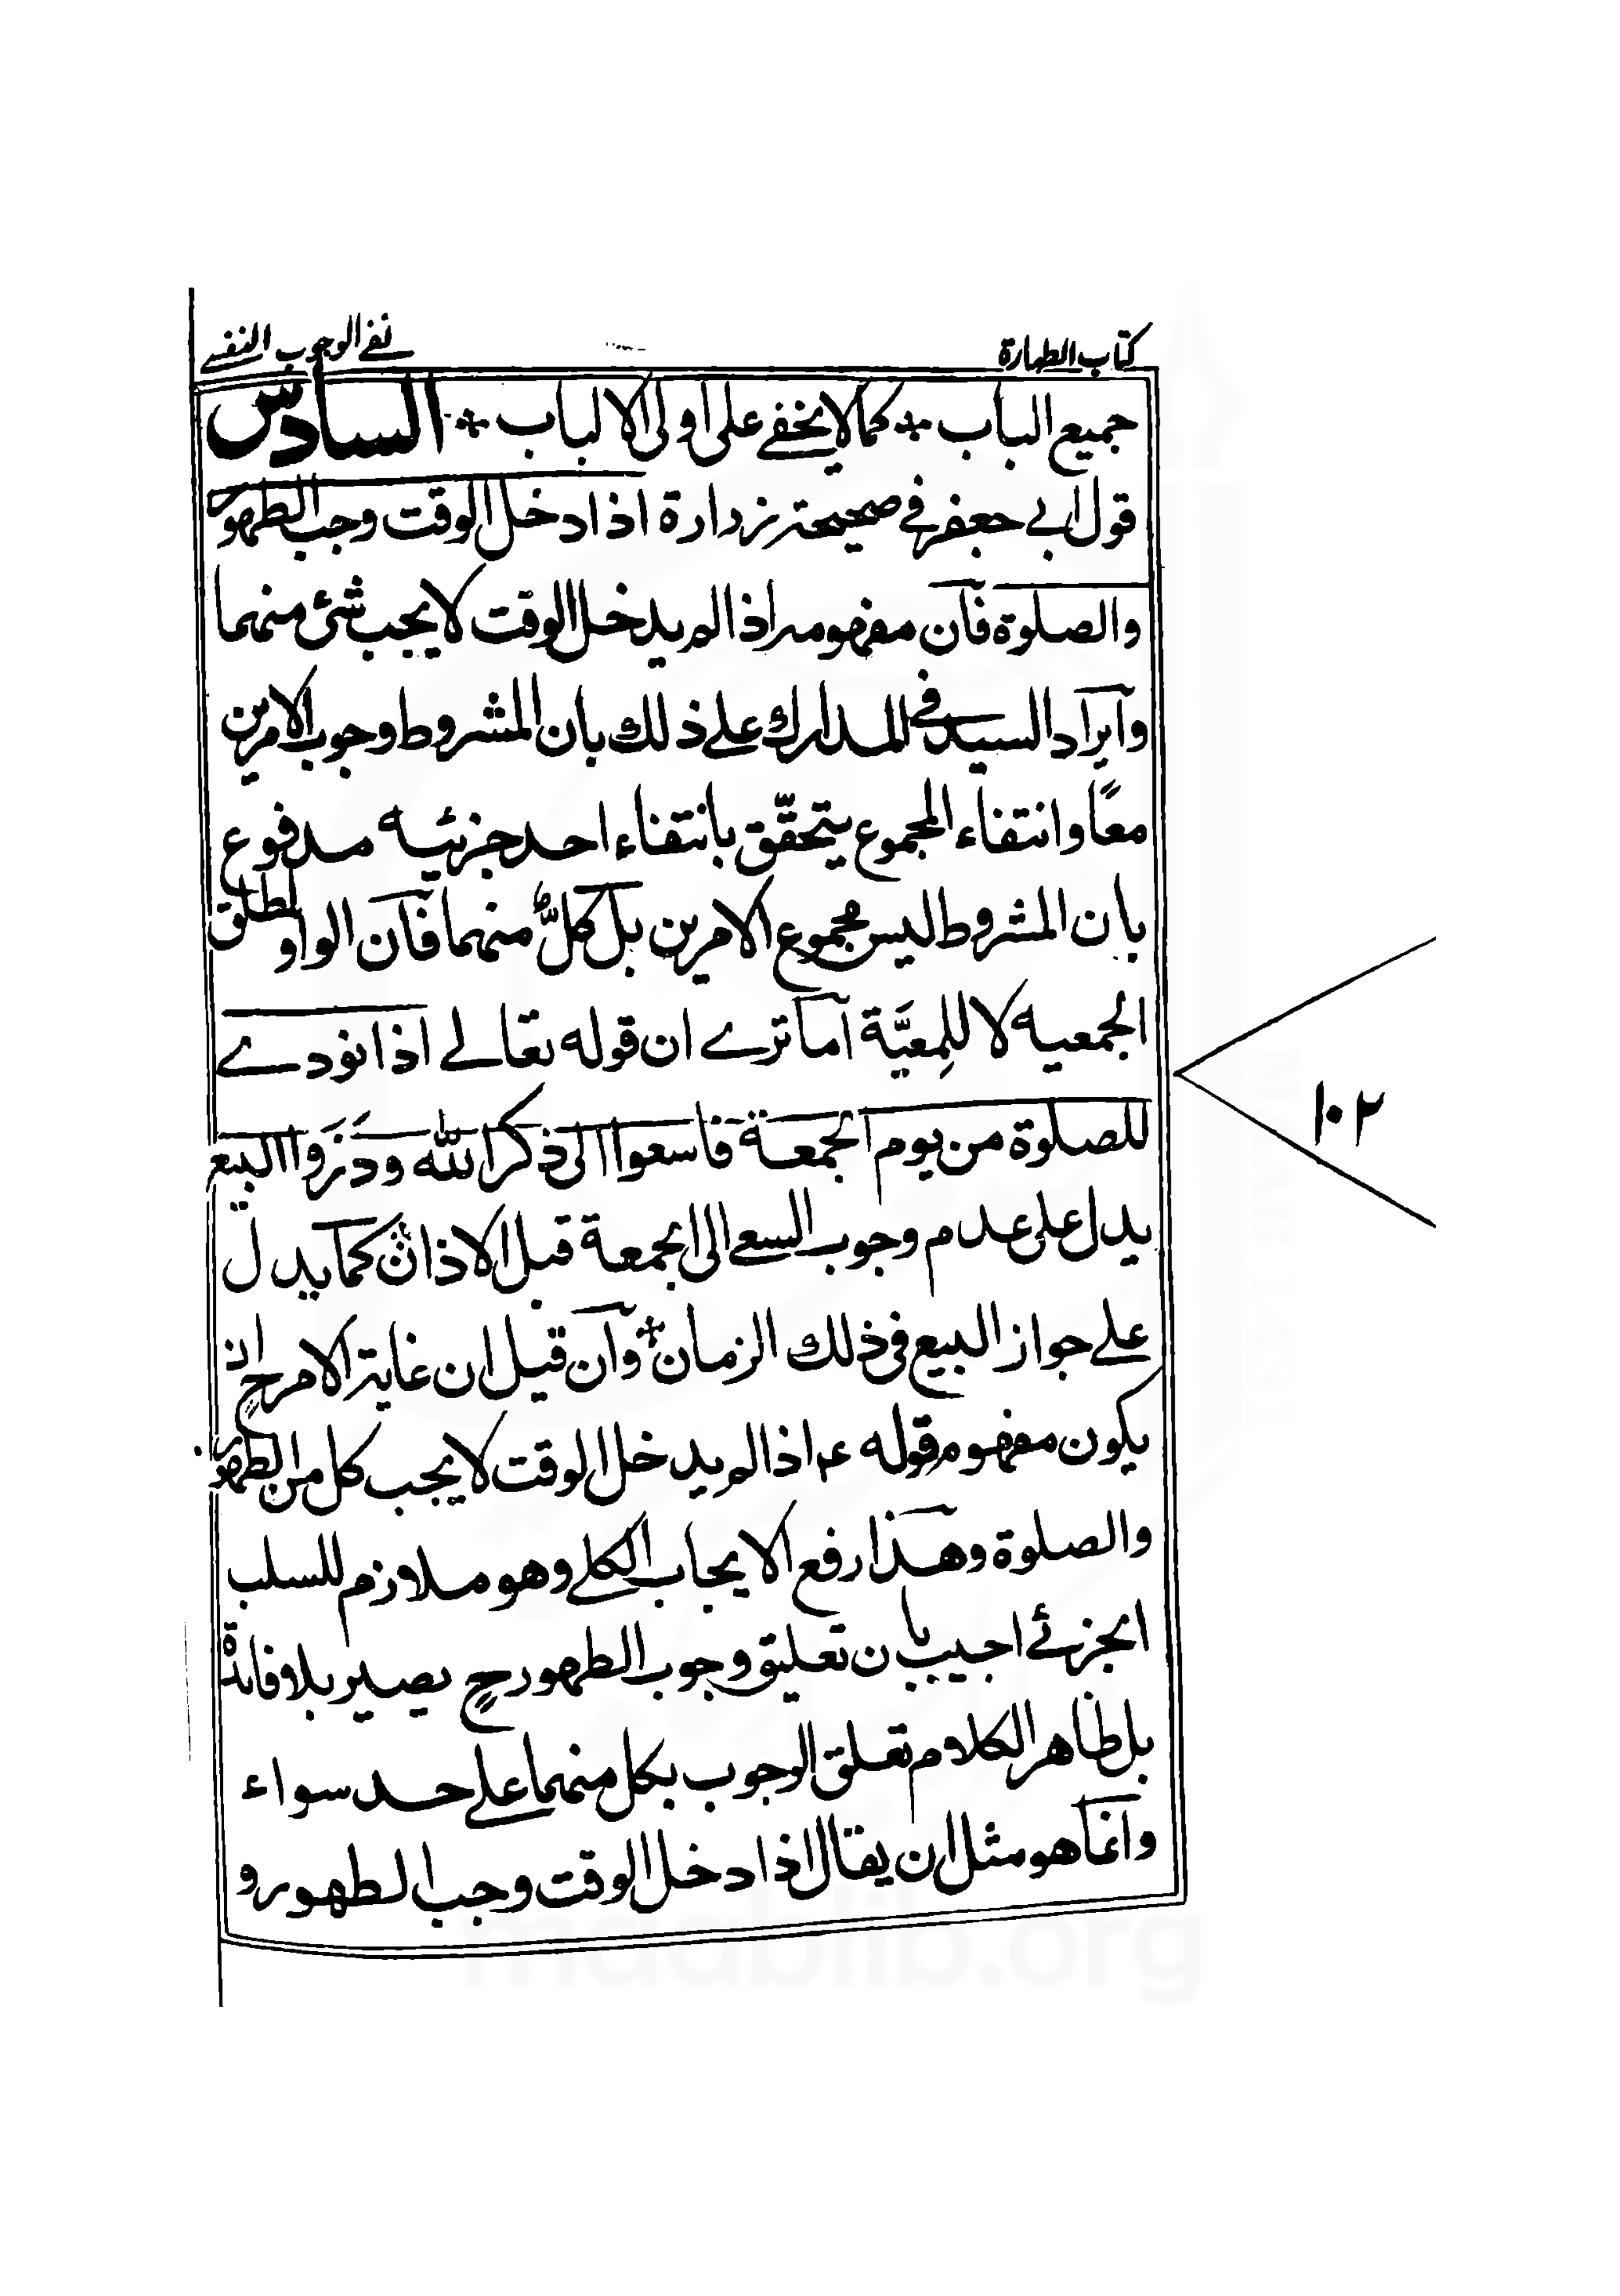 كتاب الطهارة
نفے الوجوب النفسے
جميع الباب * كما لا يخفے على اولى الالباب * السادس
قول ابے جعفر فے صحيحة زرارة اذا دخل الوقت وجب الطهور
والصلوة فان مفهومه اذا لم يدخل الوقت لا يجب شئ منهما
وايراد السيد فے المدارك علے ذلك بان المشروط وجوب الامرين
معًا وانتفاء المجموع يتحقّق بانتفاء احد جزئيه مدفوع
بان المشروط ليس مجموع الامرين بل كلٌّ منهما فان الواو لمطلق
الجمعيه لا للمِعيَّة اما ترے ان قوله تعالے اذا نودے
للصلوة من يوم الجمعة فاسعوا الى ذكر الله وذَرَوا البيع
يدل على عدم وجوب السعے الى الجمعة قبل الاذان كما يدل
علے جواز البيع فى ذلك الزمان * وان قيل ان غاية الامر ح ان
يكون مفهوم قوله ع اذا لم يدخل الوقت لا يجب كل من الطهور
والصلوة وهذا رفع الايجاب الكلے وهو ملازم للسلب
الجزئے اجيب بان تعليق وجوب الطهور ح يصير بلا فائدة
بل ظاهر الكلام تعلق الوجوب بكل منهما علے حد سواء
وانما هو مثل ان يقال اذا دخل الوقت وجب الطهور و
١٠٢
MAAB 1431
maablib.org